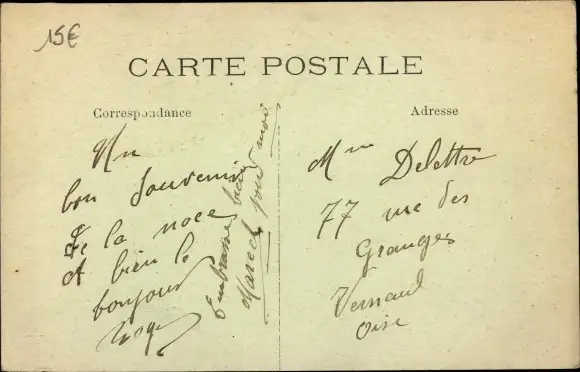 15€
CARTE POSTALE
Correspondance
Un
bon Souvenir
de la noce
et bien le
bonjour
Embrasse bien
Marcel pour moi
Adresse
Mme Delettre
77 rue des
Granges
Vernaud
Oise